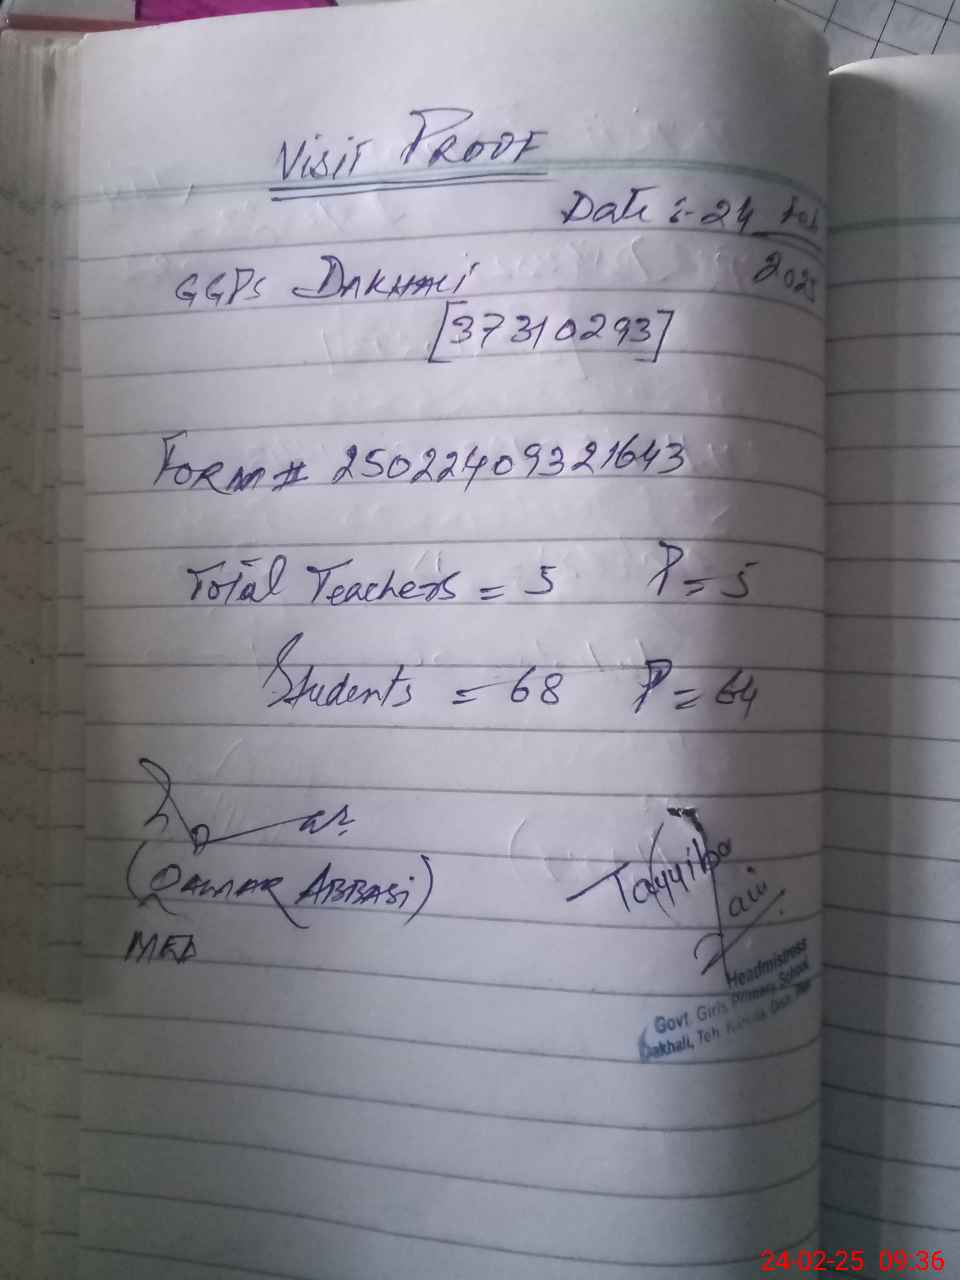 Visit Proof
Date :- 24 Feb
2025
GGPS Dakhali
[37310293]
Form # 25022409321643
Total Teachers = 5 P = 5
Students = 68 P = 64
(Qamar Abbasi)
MEA
Tayyiba
Headmistress
Govt. Girls Primary School
Dakhali, Teh.
24-02-25 09:36